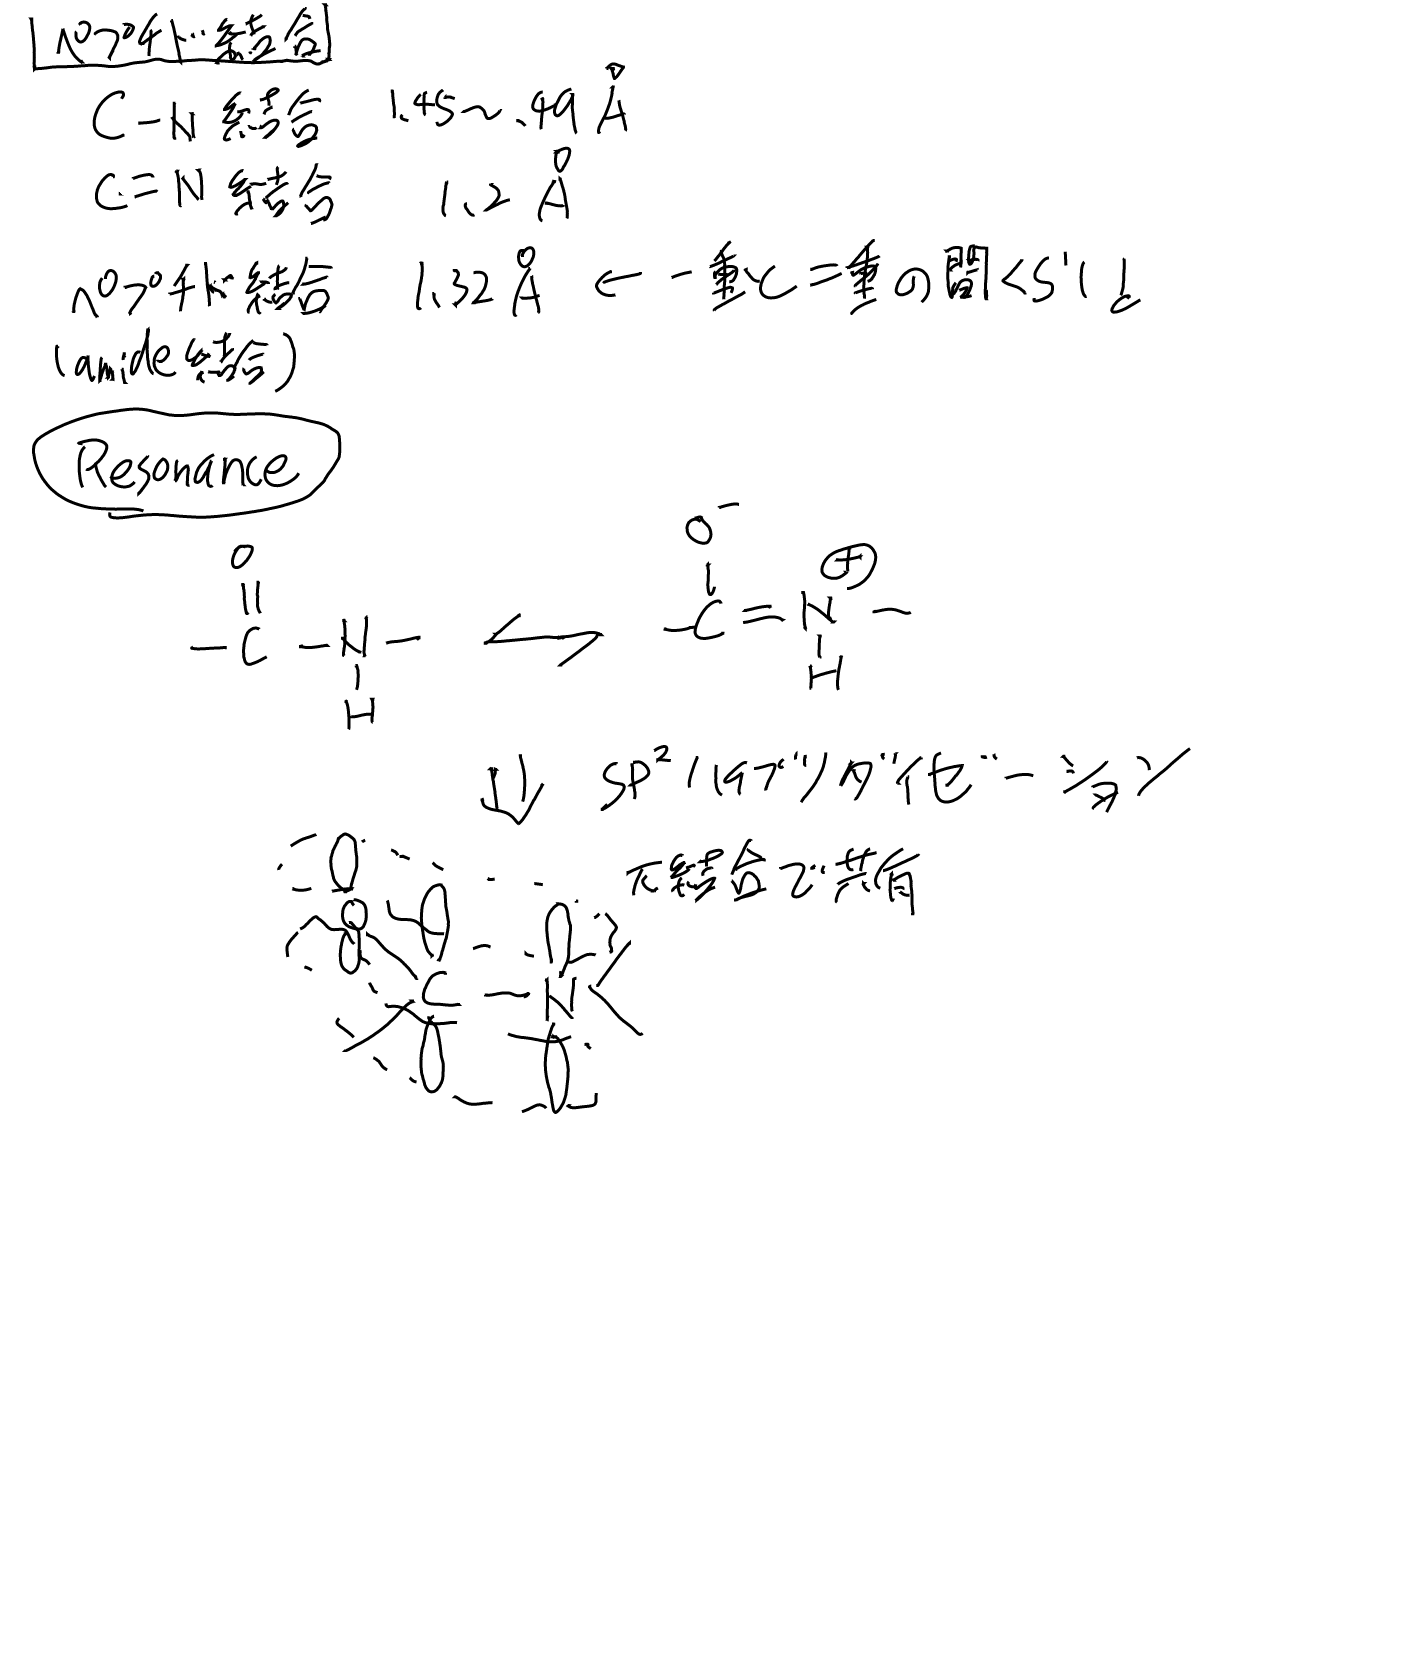 ペプチド結合
C-N 結合 1.45～.49 Å
C=N 結合 1.2 Å
ペプチド結合 1.32 Å ← 一重と二重の間くらい!
(amide結合)
Resonance
O O⁻
|| | ⊕
-C-N- ⇌ -C=N-
H H
⇓ SP² ハイブリダイゼーション
π結合で共有
O
C-N